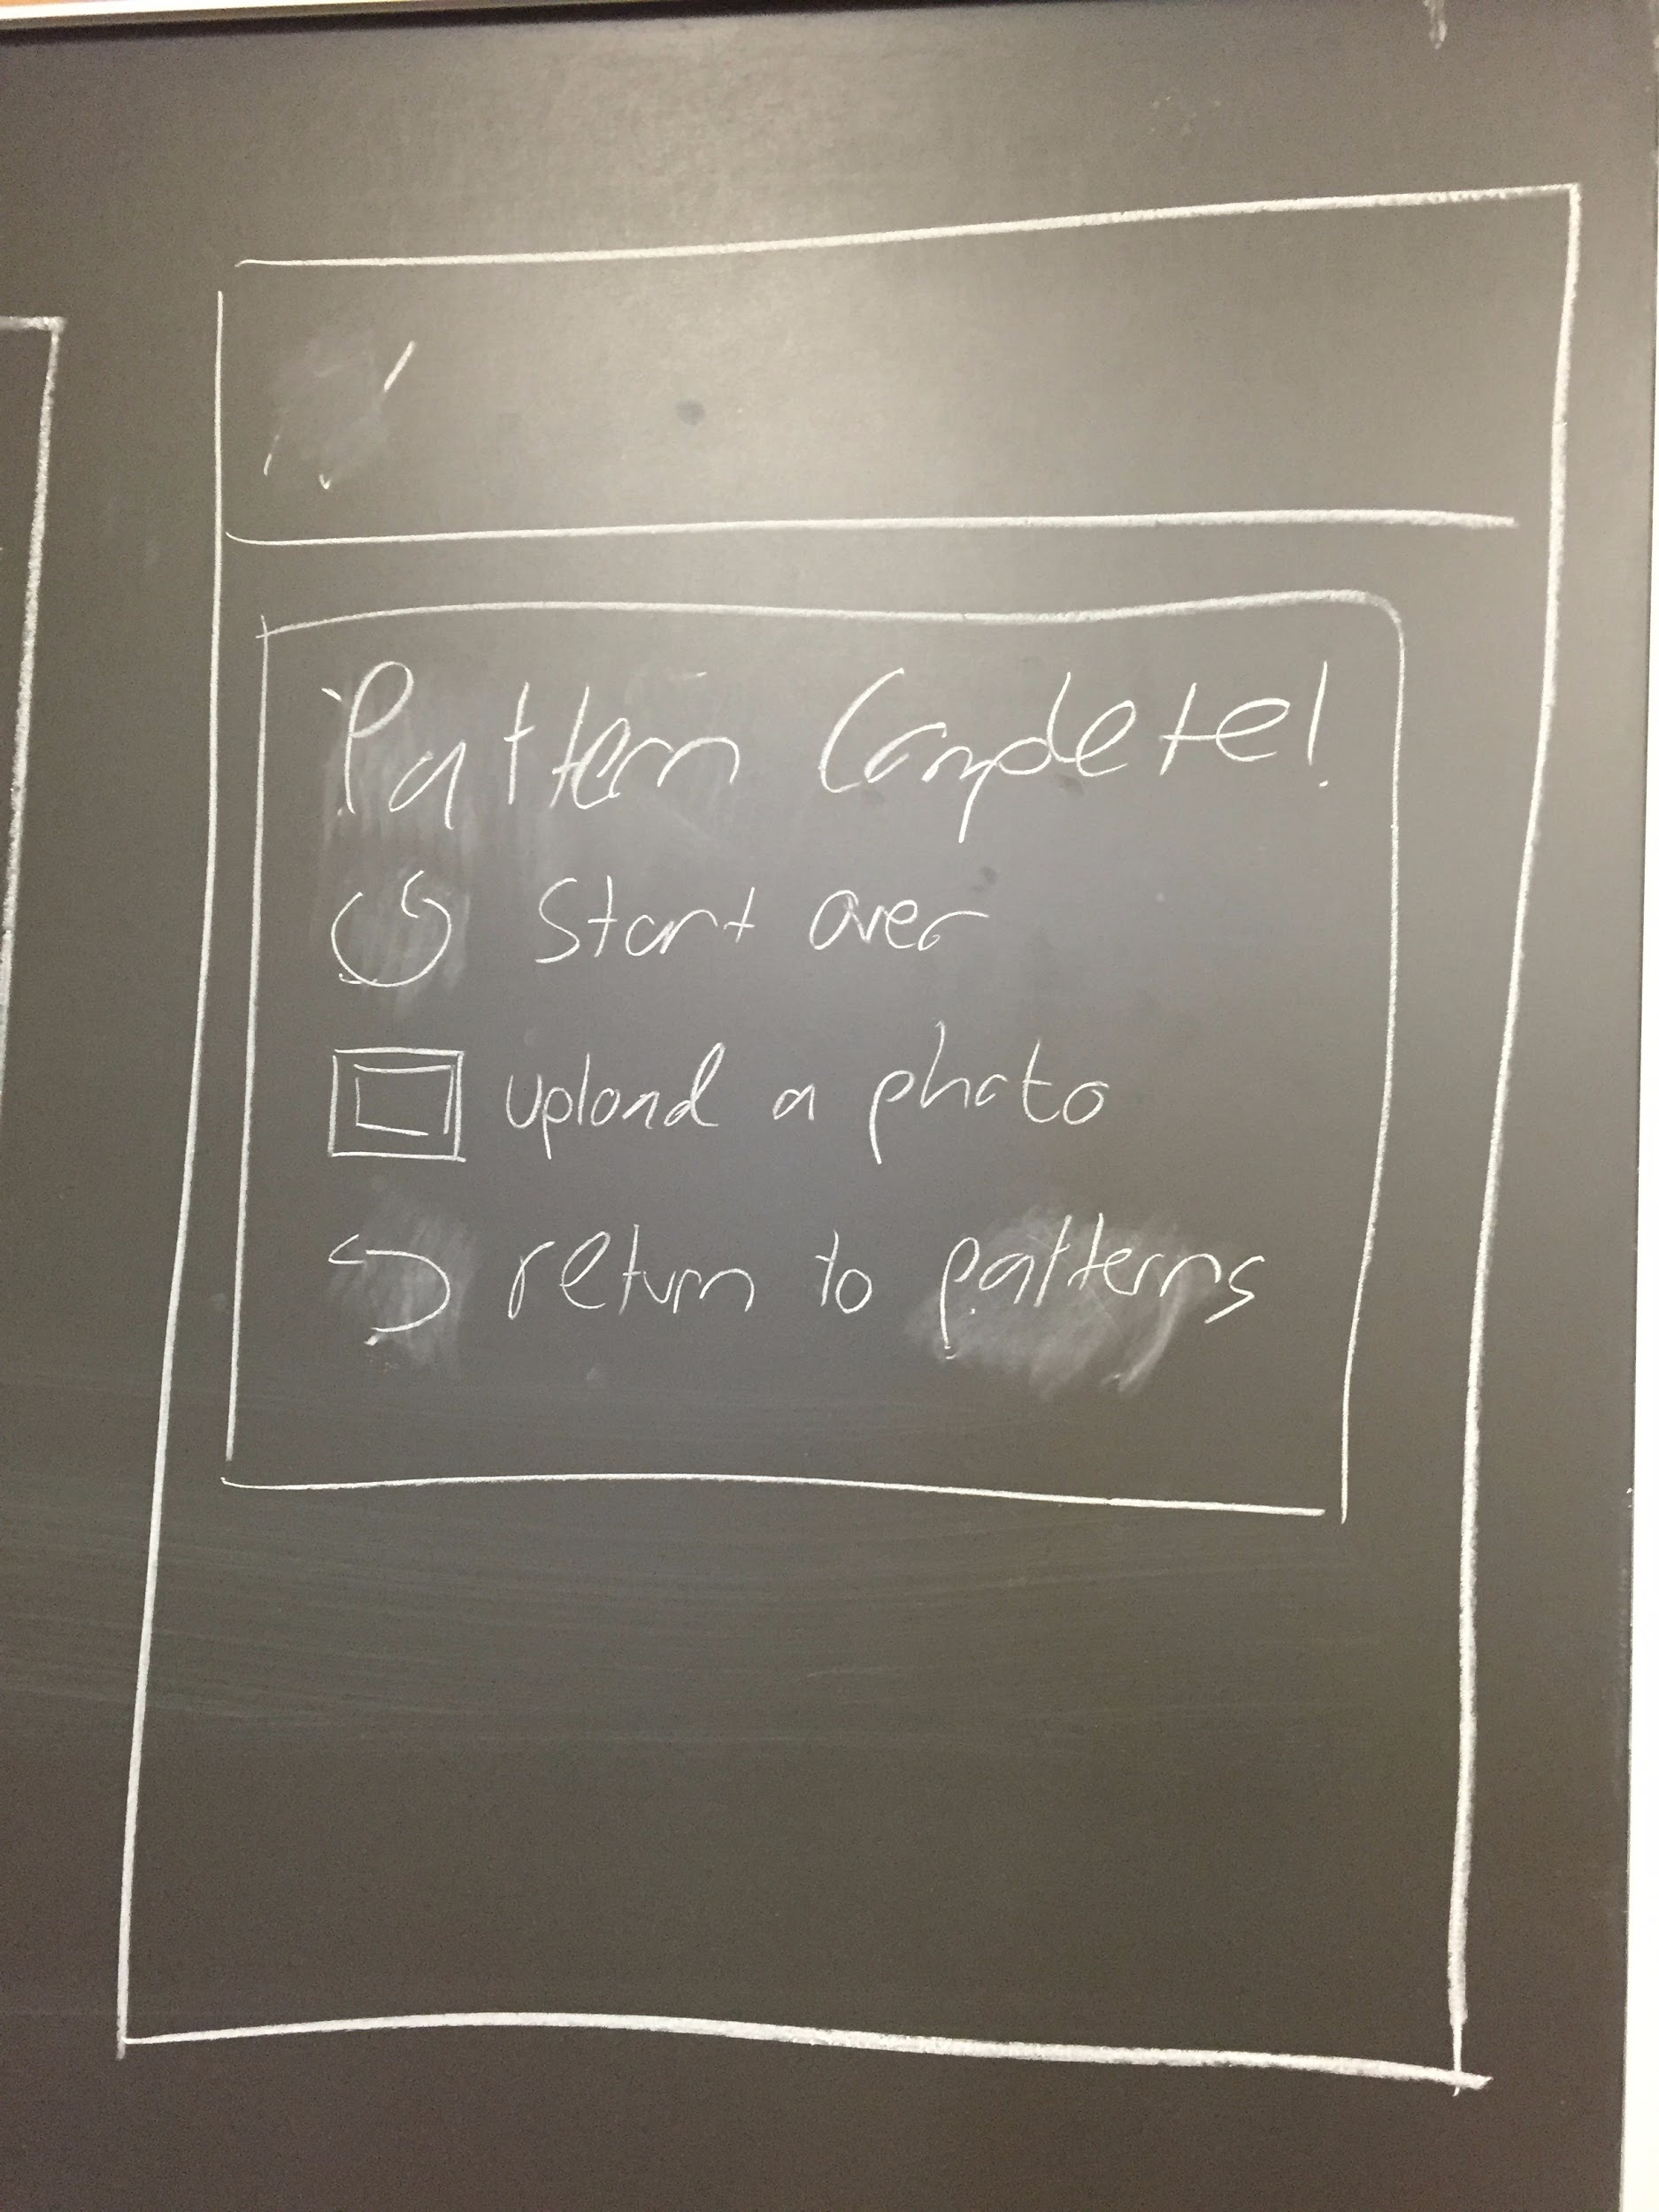 Pattern Complete!
Start over
upload a photo
return to patterns